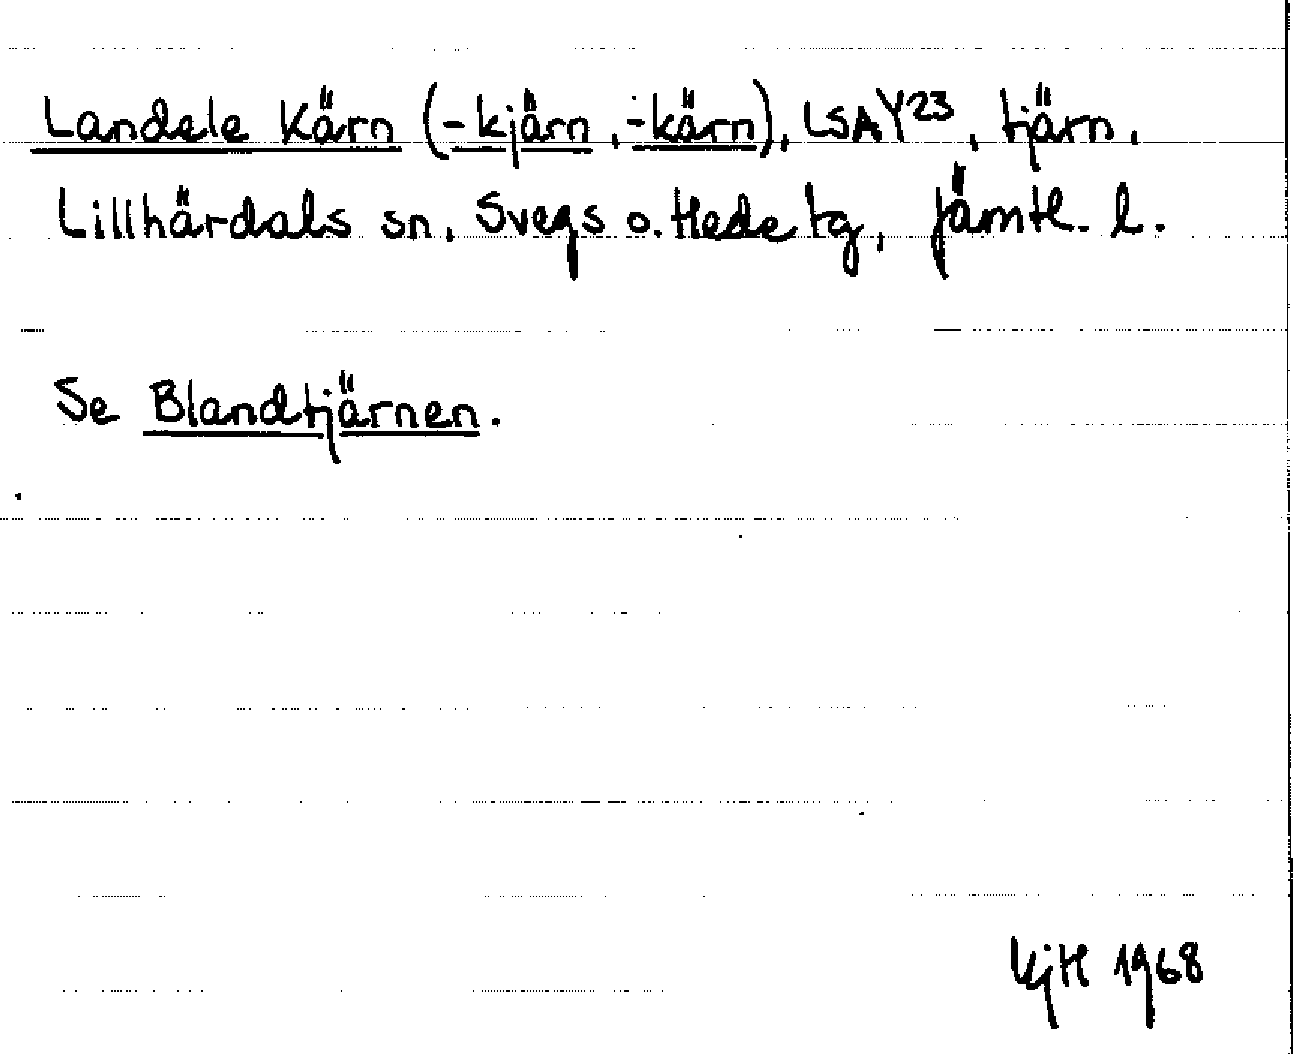 Landele Kärn (-kjärn, -kärn), LSA Y23, tjärn,
Lillhärdals sn, Svegs o. Hede tg, Jämtl. l.
Se Blandtjärnen.
KjH 1968